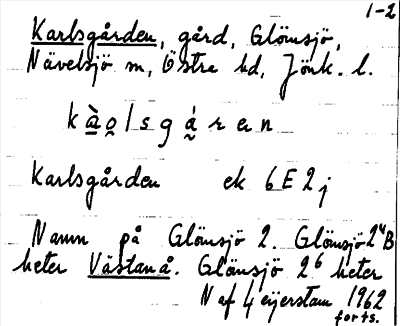 1-2
Karlsgården, gård, Glömsjö,
Nävelsjö sn, Östra hd, Jönk. l.
kàọlsgá̰ren
Karlsgården ek 6E2j
Namn på Glömsjö 2. Glömsjö 2⁴B
heter Västanå. Glömsjö 2⁶ heter
N af 1962
forts.